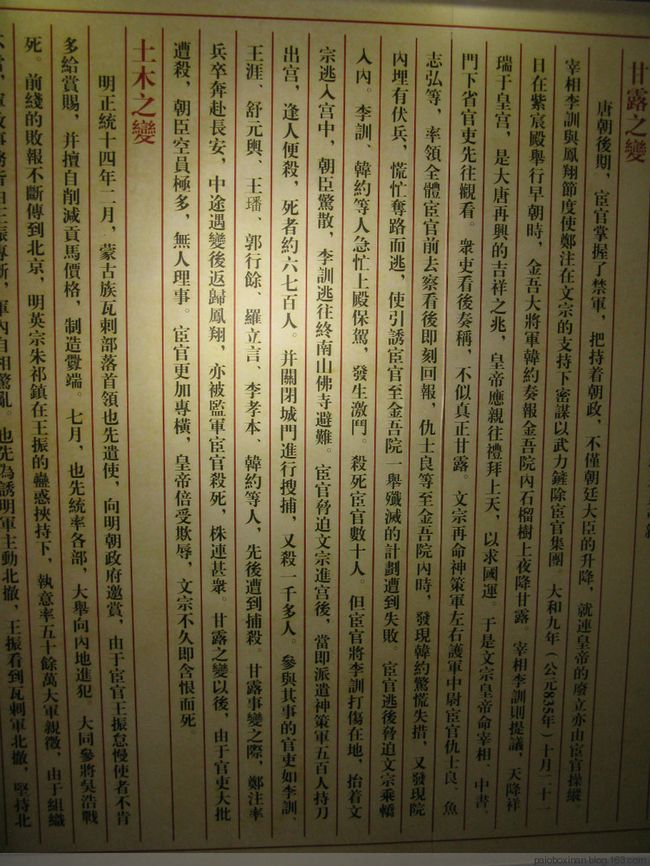 甘露之變
唐朝後期，宦官掌握了禁軍，把持着朝政，不僅朝廷大臣的升降，就連皇帝的廢立亦由宦官操縱
宰相李訓與鳳翔節度使鄭注在文宗的支持下密謀以武力鏟除宦官集團。大和九年（公元835年）十月二十一
日在紫宸殿舉行早朝時，金吾大將軍韓約奏報金吾院內石榴樹上夜降甘露　宰相李訓則提議，天降祥
瑞于皇宮，是大唐再興的吉祥之兆，皇帝應親往禮拜上天，以求國運。于是文宗皇帝命宰相、中書、
門下省官吏先往觀看。衆吏看後奏稱，不似真正甘露。文宗再命神策軍左右護軍中尉宦官仇士良、魚
志弘等，率領全體宦官前去察看後即刻回報，仇士良等至金吾院內時，發現韓約驚慌失措，又發現院
內埋有伏兵，慌忙奪路而逃，使引誘宦官至金吾院一舉殲滅的計劃遭到失敗。宦官逃後脅迫文宗乘轎
入內。李訓、韓約等人急忙上殿保駕，發生激鬥。殺死宦官數十人。但宦官將李訓打傷在地，抬着文
宗逃入宮中，朝臣驚散，李訓逃往終南山佛寺避難。宦官脅迫文宗進宮後，當即派遣神策軍五百人持刀
出宮，逢人便殺，死者約六七百人。并關閉城門進行搜捕，又殺一千多人。參與其事的官吏如李訓、
王涯、舒元輿、王璠、郭行餘、羅立言、李孝本、韓約等人，先後遭到捕殺。甘露事變之際，鄭注率
兵卒奔赴長安，中途遇變後返歸鳳翔，亦被監軍宦官殺死，株連甚衆。甘露之變以後，由于官吏大批
遭殺，朝臣空員極多，無人理事。宦官更加專橫，皇帝倍受欺辱，文宗不久即含恨而死。
土木之變
明正統十四年二月，蒙古族瓦剌部落首領也先遣使，向明朝政府邀賞，由于宦官王振怠慢使者不肯
多給賞賜，并擅自削減貢馬價格，制造釁端。七月，也先統率各部，大舉向內地進犯。大同參將吳浩戰
死。前綫的敗報不斷傳到北京，明英宗朱祁鎮在王振的蠱惑挾持下，執意率五十餘萬大軍親徵，由于組織
王振專斷，軍內自相驚亂。也先為誘明軍主動北撤，王振看到瓦剌軍北撤，堅持北
paioboxinan.blog.163.com